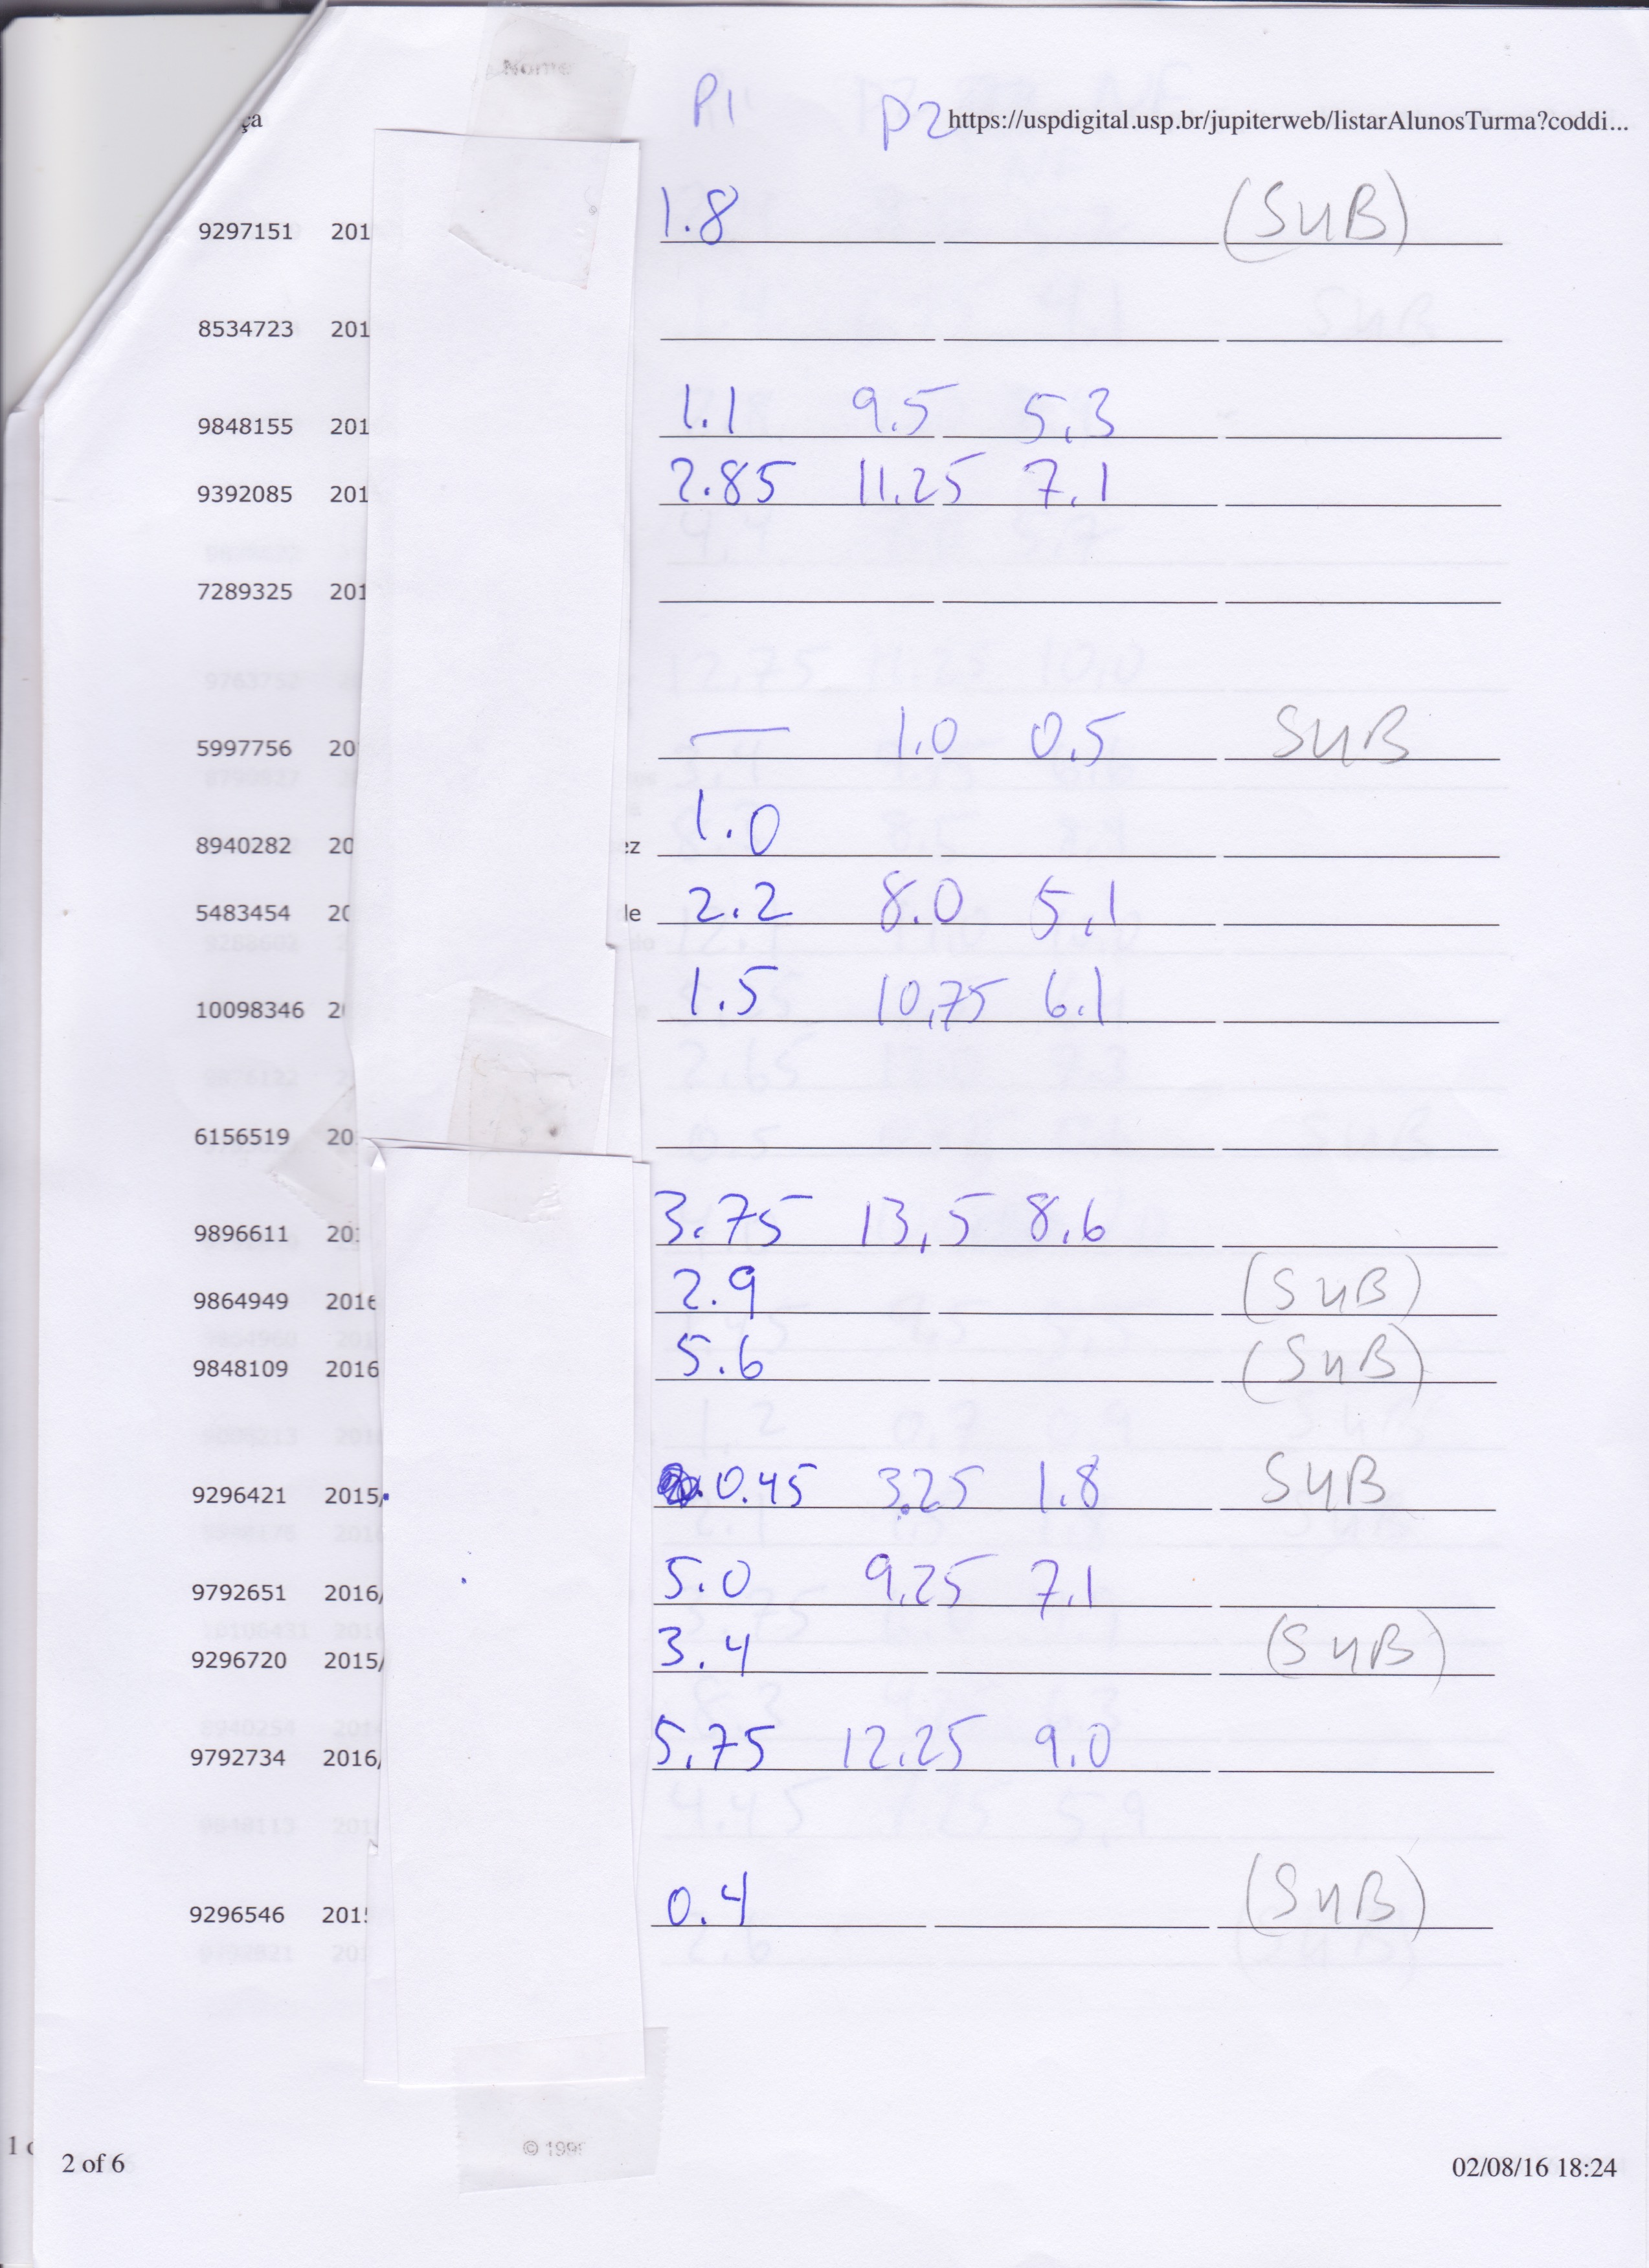 Nome
P1
ça P2 https://uspdigital.usp.br/jupiterweb/listarAlunosTurma?coddi...
9297151 201 1.8 (SUB)
8534723 201
9848155 201 1.1 9.5 5,3
9392085 201 2.85 11.25 7.1
7289325 201
5997756 20 — 1.0 0.5 SUB
8940282 20 ez 1.0
5483454 20 le 2.2 8.0 5,1
10098346 2 1.5 10,75 6.1
6156519 20
9896611 20 3.75 13,5 8.6
9864949 2016 2.9 (SUB)
9848109 2016 5.6 (SUB)
9296421 2015/ 0.45 3.25 1.8 SUB
9792651 2016/ 5.0 9.25 7.1
9296720 2015/ 3.4 (SUB)
9792734 2016/ 5.75 12.25 9.0
9296546 2015 0.4 (SUB)
© 1999
2 of 6 02/08/16 18:24